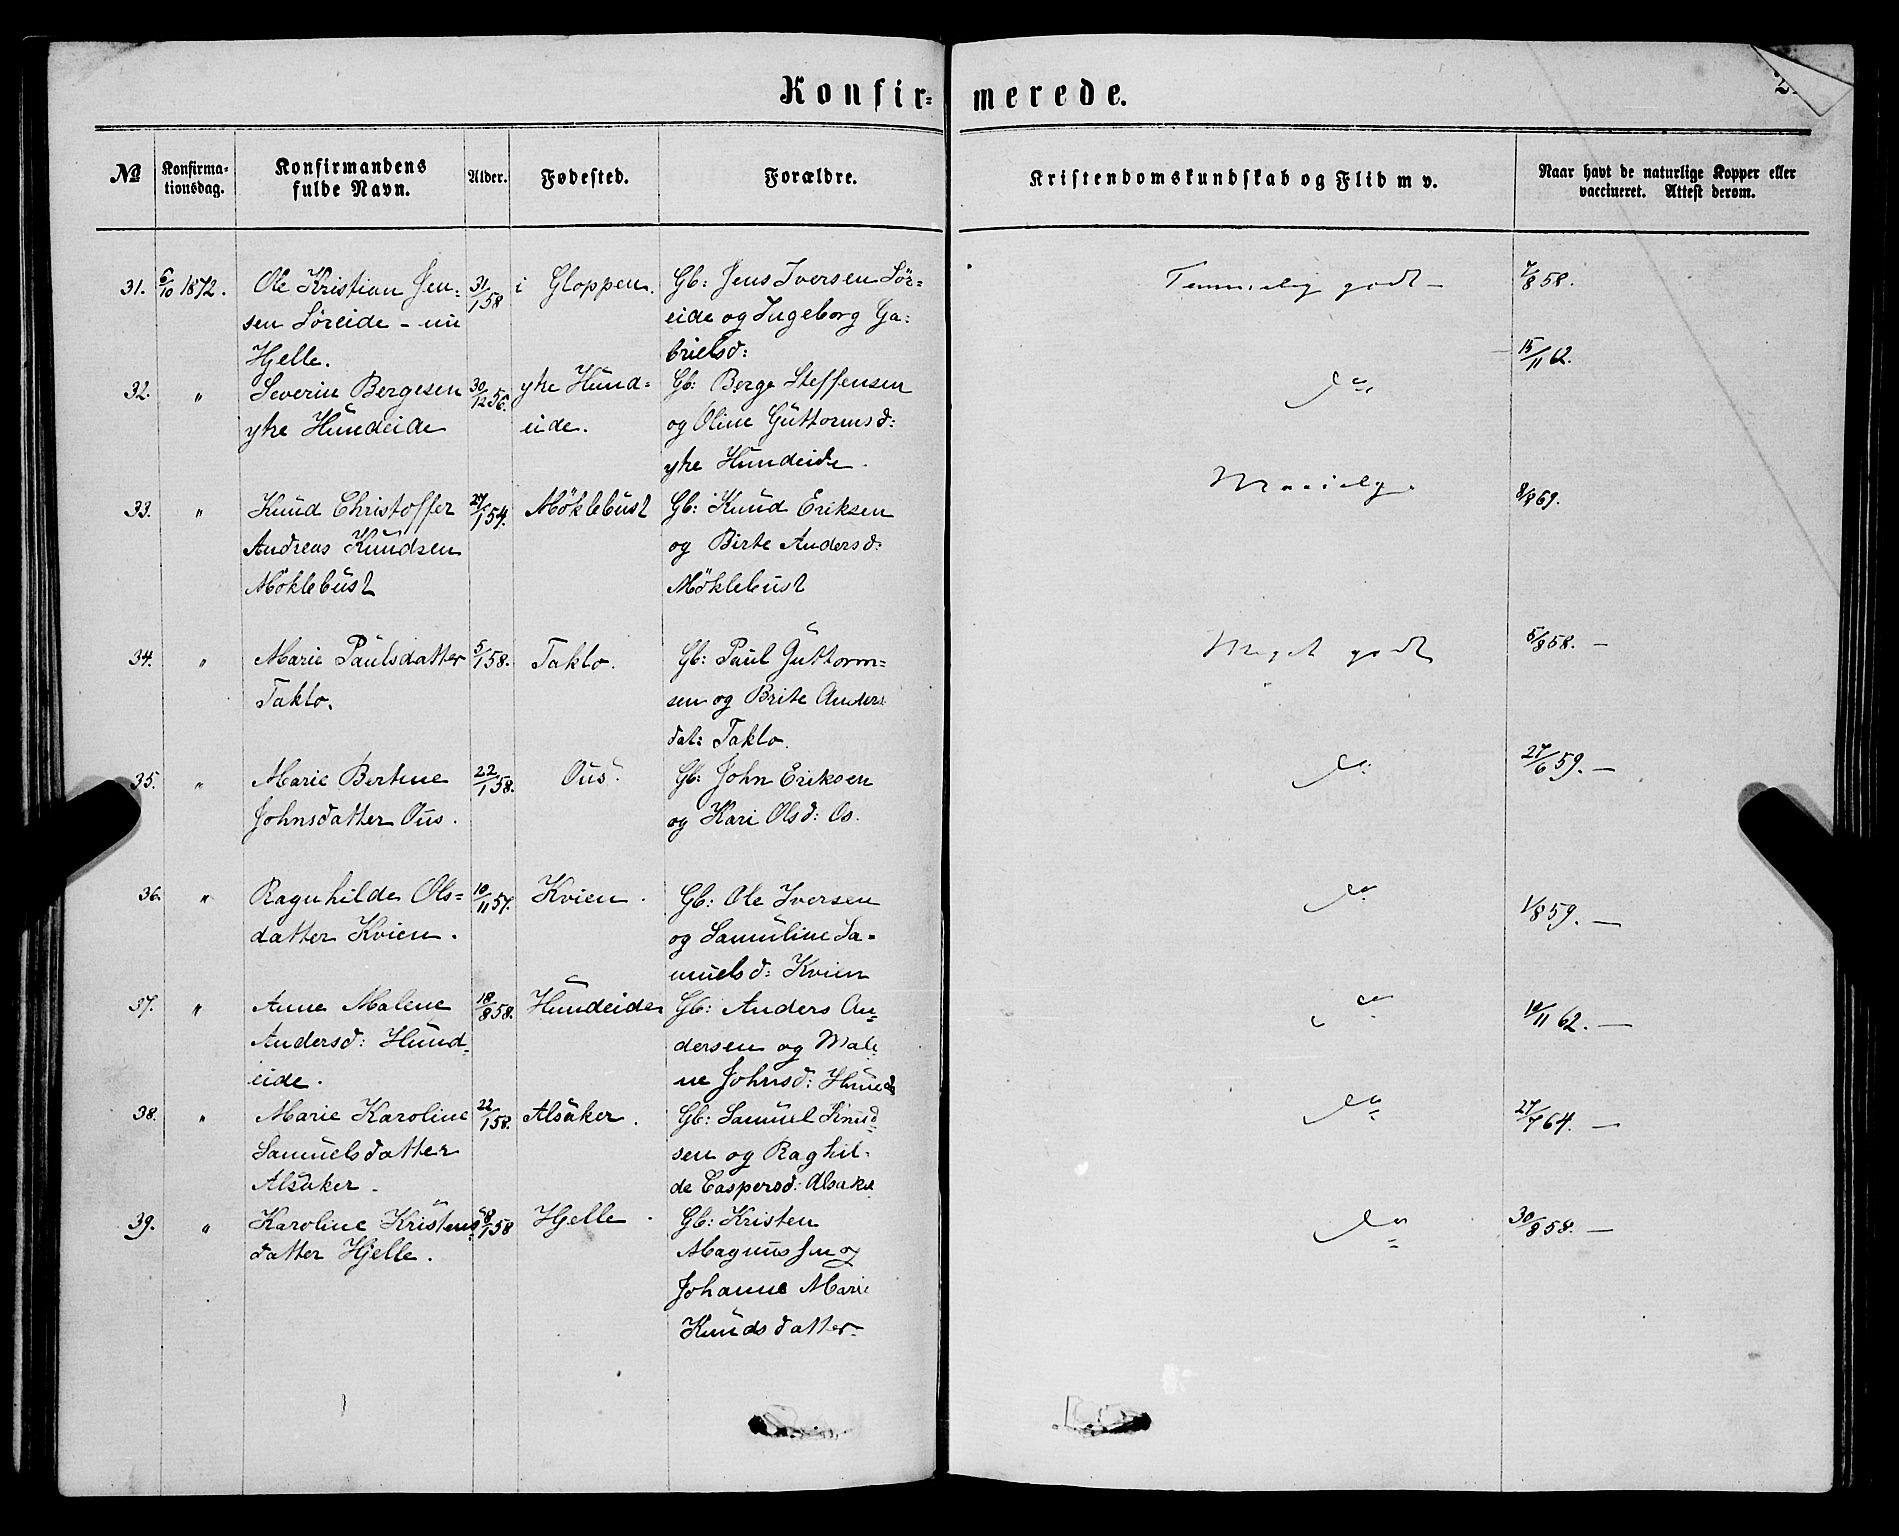 Konfir-
merede.
№
Konfirma-
tionsdag.
Konfirmandens
fulde Navn.
Alder.
Fødested.
Forældre.
Kristendomskundskab og Flid m v.
Naar havt de naturlige Kopper eller
vaccineret. Attest derom.
31. 6/10 1872. Ole Kristian Jen= 31/1 58 i Gloppen. Gb: Jens Iversen Sör= Temmelig godt – 7/8 58.
sen Söreide – nu eide og Ingeborg Ga:
Hjelle. brielsd:
15/11 62.
32. " Severin Bergesen 30/12 56. ytre Hund= Gb: Berge Steffensen do,
ytre Hundeide eide. og Oline Guttormsd:
ytre Hundeide.
33. " Knud Christoffer 27/1 54. Möklebust Gb: Knud Eriksen Maadelig. 8/8 69.
Andreas Knudsen og Birte Andersd:
Möklebust Möklebust
34. " Marie Paulsdatter 5/1 58. Taklo. Gb: Paul Guttorm= Meget godt 5/8 58. –
Taklo. sen og Brite Anders
dat: Taklo.
35. " Marie Bertine 22/1 58. Ous. Gb: John Eriksen do 27/6 59. –
Johnsdatter Ous. og Kari Olsd: Os.
36. " Ragnhilde Ols= 10/11 57. Kvien. Gb: Ole Iversen do 1/8 59. –
datter Kvien. og Samuline Sa=
muelsd: Kvien
37. " Anne Malene 18/8 58. Hundeide Gb: Anders An= do 10/11 62. –
Andersd: Hund= dersen og Male
eide. ne Johnsd:
38. " Marie Karoline 22/1 58. Alsaker. Gb: Samuel Knud do 27/7 64. –
Samuelsdatter sen og Raghil-
Alsaker. de Caspersd: Alsaker
39. " Karoline Kristens 28/1 58 Hjelle. Gb: Kristen do 30/8 58. –
datter Hjelle. Magnussen og
Johanne Marie
Knudsdatter